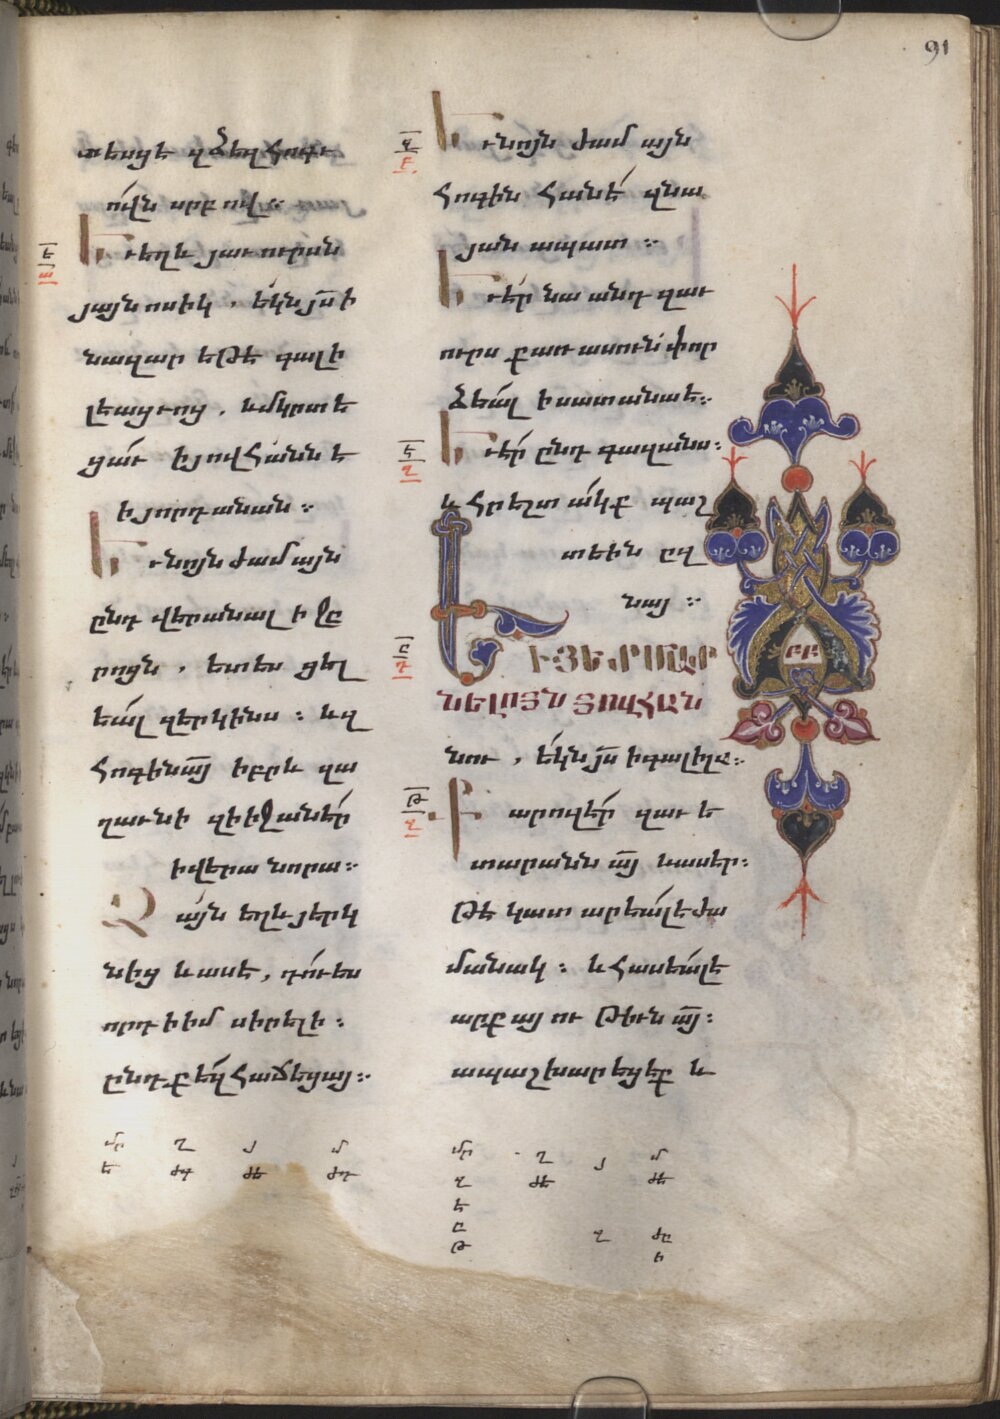 91
տեսցէ զձեզ հոգւ
ովն սրբով։
Եւ եղև յաւուրսն
յայնոսիկ, եկն յ̅ս ի
նազարեթէ գալի
լեացւոց, և մկրտե
ցաւ ի յովհաննէ
ի յորդանան։
Եւ նոյն ժամայն
ընդ վերանալ ի ջը
րոցն, ետես ցել
եալ զերկինս։ և զ
հոգին ա̅յ իբրև զա
ղաւնի զի իջանէր
ի վերա նորա։
Ձայն եղև յերկ
նից և ասէ, դու ես
որդի իմ սիրելի։
ընդ քեզ հաճեցայ։
Եւ նոյն ժամ այն
հոգին հանէ զնա
յանապատ։
Եւ էր նա անդ զաւ
ուրս քառասուն փոր
ձեալ ի սատանաե։
Եւ էր ընդ գազանս։
և հրեշտակք պաշ
տեին ըզ
նայ։
ԵՒ ՅԵՏ ՄԱՏ
ՆԵԼՈՅՆ ՅՈՎՀԱՆ
նու, եկն յ̅ս ի գալիլէ։
Քարոզէր զաւե
տարանն ա̅յ և ասէր։
թե կատարեալ է ժա
մանակ։ և հասեալ է
արքայութիւն ա̅յ։
ապաշխարեցէք և
բբ
մր ղ յ մ
ե ժգ ժե ժդ
մր ղ յ մ
զ ժե ժե
է
ը
թ